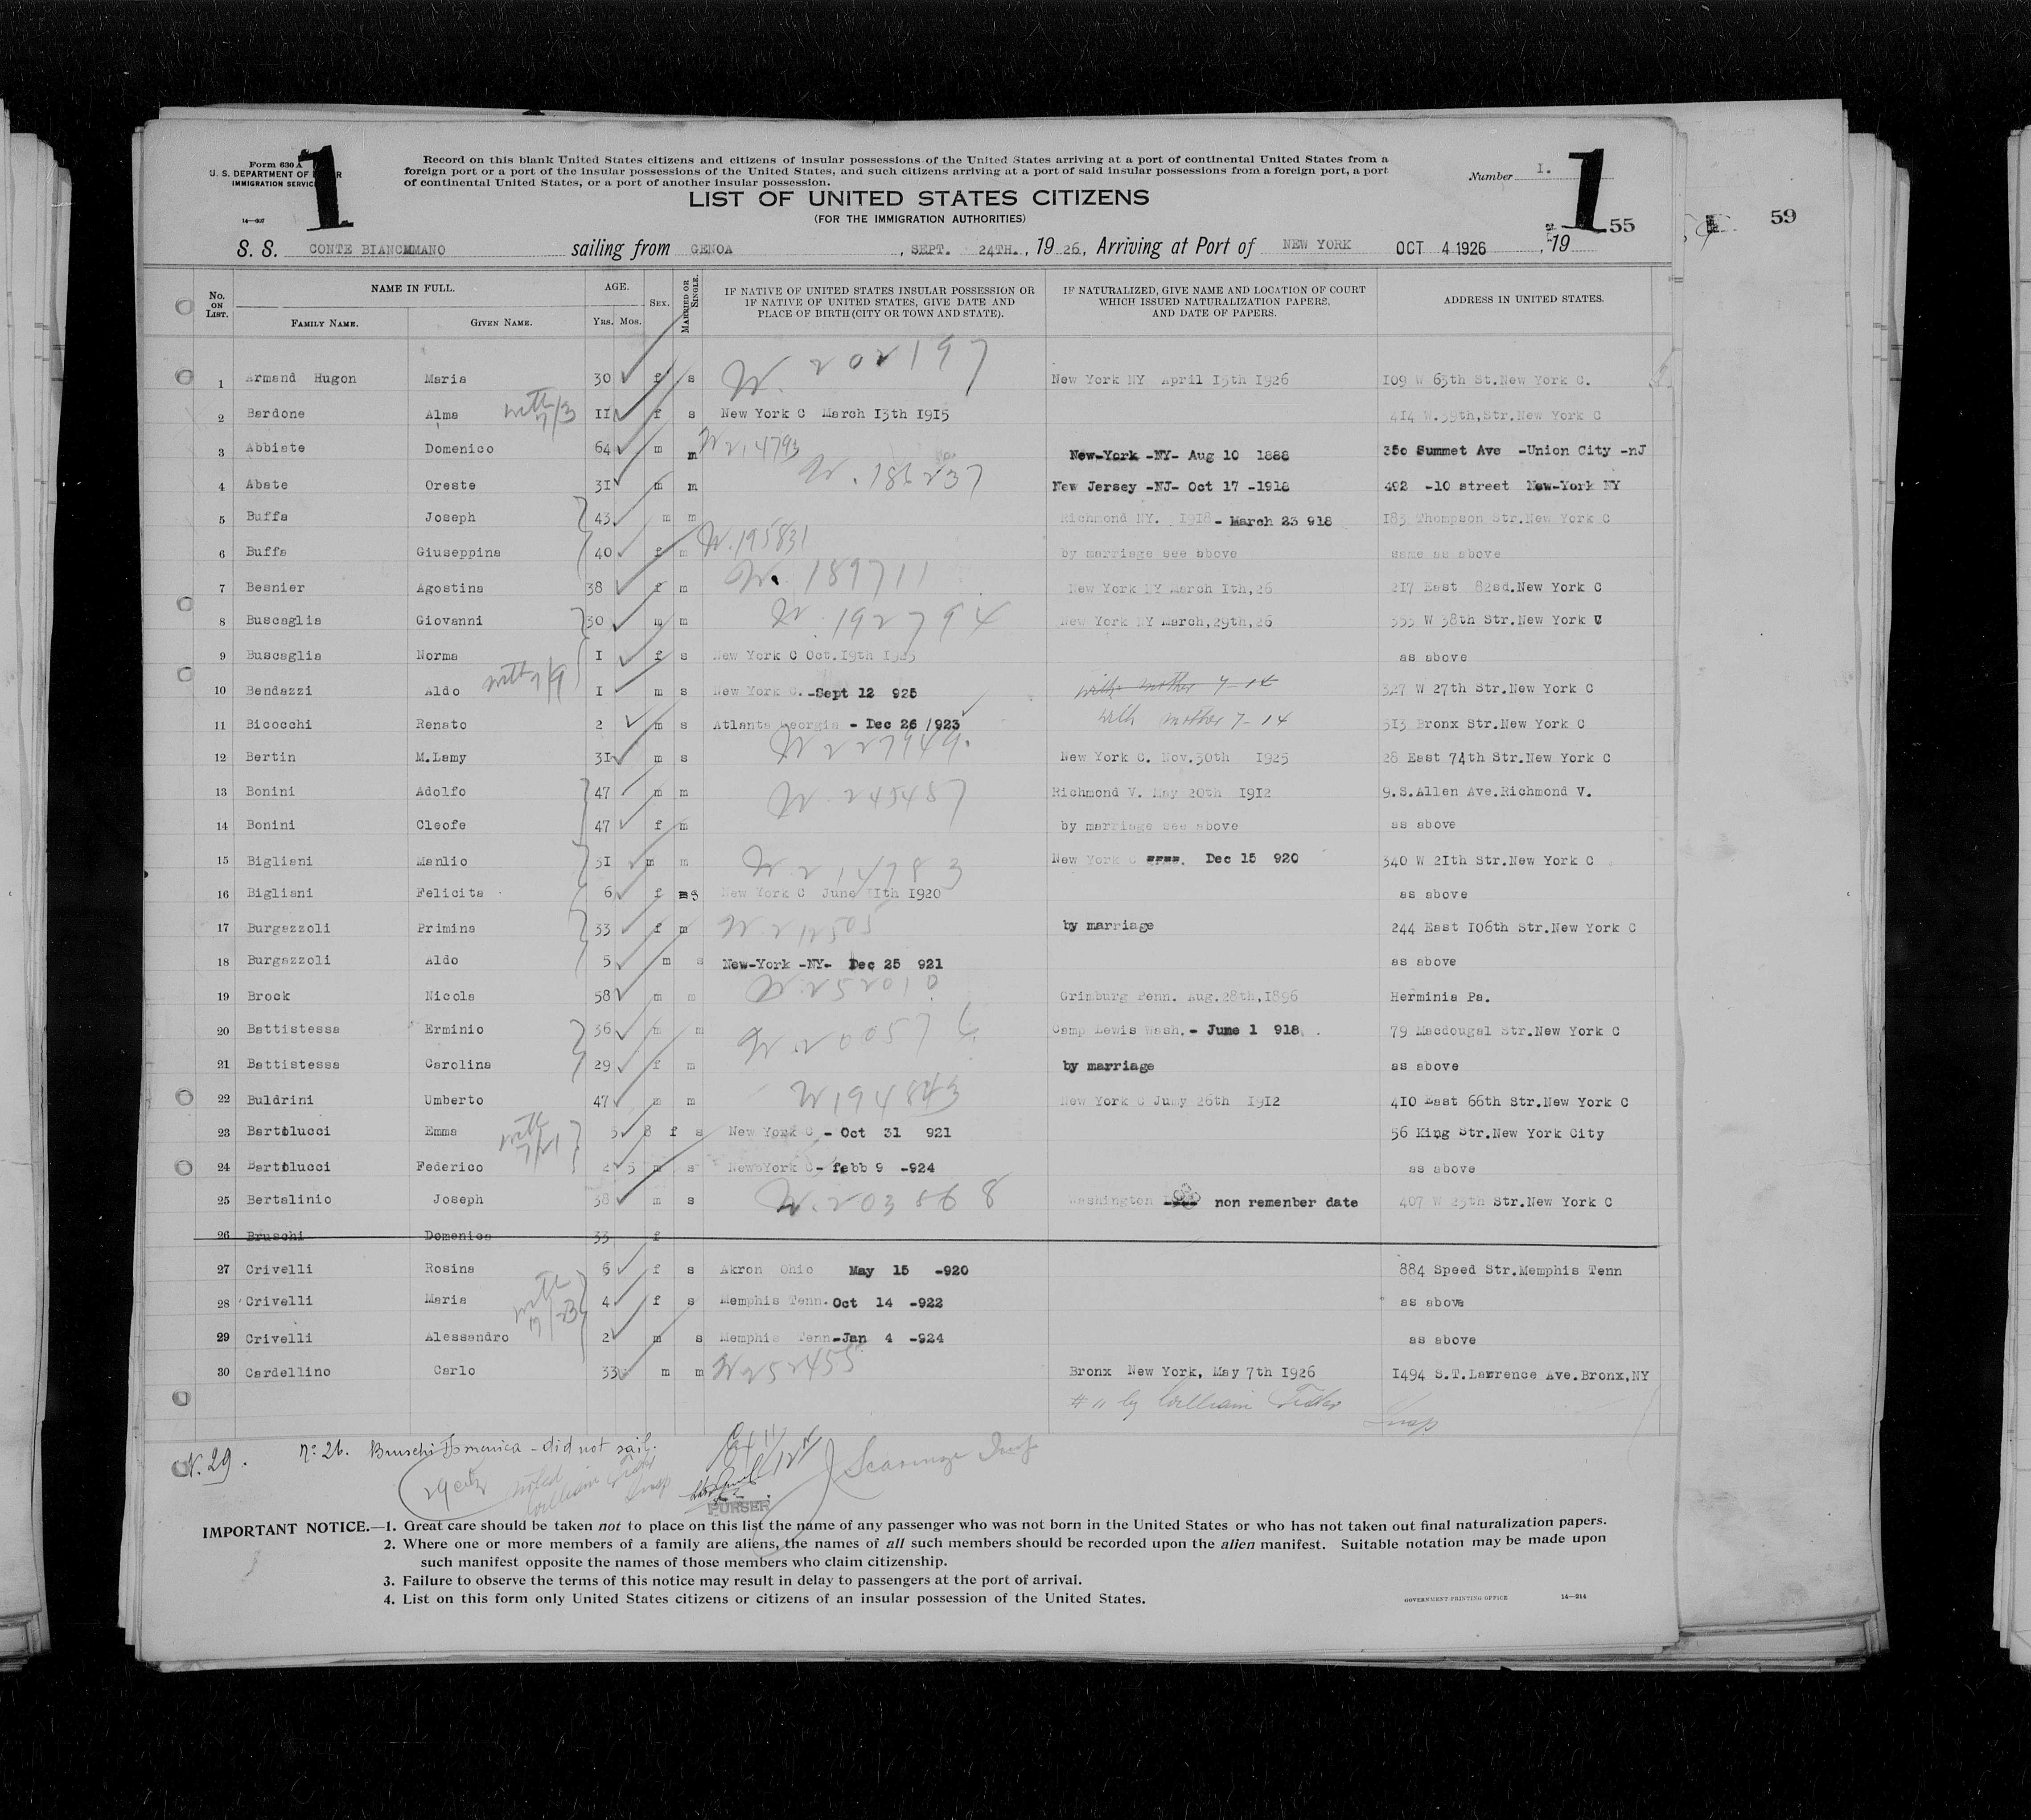 Form 630 A
U. S. DEPARTMENT OF
IMMIGRATION SERVICE
1
Record on this blank United States citizens and citizens of insular possessions of the United States arriving at a port of continental United States from a
foreign port or a port of the insular possessions of the United States, and such citizens arriving at a port of said insular possessions from a foreign port, a port
of continental United States, or a port of another insular possession.
Number 1.
1
55
59
LIST OF UNITED STATES CITIZENS
(FOR THE IMMIGRATION AUTHORITIES)
S. S. CONTE BIANCAMANO sailing from GENOA, SEPT. 24TH., 1926, Arriving at Port of NEW YORK OCT 4 1926, 19
No. ON LIST. NAME IN FULL. FAMILY NAME. GIVEN NAME. AGE. Yrs. Mos. SEX. MARRIED OR SINGLE. IF NATIVE OF UNITED STATES INSULAR POSSESSION OR IF NATIVE OF UNITED STATES, GIVE DATE AND PLACE OF BIRTH (CITY OR TOWN AND STATE). IF NATURALIZED, GIVE NAME AND LOCATION OF COURT WHICH ISSUED NATURALIZATION PAPERS, AND DATE OF PAPERS. ADDRESS IN UNITED STATES.
1 Armand Hugon Maria 30 f s W. 202197 New York NY April 15th 1926 109 W 63th St.New York C.
2 Bardone Alma with 7/3 11 f s New York C March 13th 1915 414 W.39th,Str.New York C
3 Abbiate Domenico 64 m m W 214793 New-York -NY- Aug 10 1888 350 Summet Ave -Union City -nJ
4 Abate Oreste 31 m m W. 186237 New Jersey -NJ- Oct 17 -1918 492 -10 street New-York NY
5 Buffa Joseph 43 m m Richmond NY. 1918 - March 23 918 183 Thompson Str.New York C
6 Buffa Giuseppina 40 f m W. 195831 by marriage see above same as above
7 Besnier Agostina 38 f m W. 189711 New York NY March 1th,26 217 East 82sd.New York C
8 Buscaglia Giovanni 30 m m W. 192794 New York NY March,29th,26 353 W 38th Str.New York C
9 Buscaglia Norma 1 f s New York C Oct.19th 1925 as above
10 Bendazzi Aldo with 7/9 1 m s New York C. -Sept 12 925 with mother 7-14 327 W 27th Str.New York C
11 Bicocchi Renato 2 m s Atlanta Georgia - Dec 26 /923 with mother 7-14 513 Bronx Str.New York C
12 Bertin M.Lamy 31 m s W 227949. New York C. Nov.30th 1925 28 East 74th Str.New York C
13 Bonini Adolfo 47 m m W. 245487 Richmond V. May 20th 1912 9.S.Allen Ave.Richmond V.
14 Bonini Cleofe 47 f m by marriage see above as above
15 Bigliani Manlio 51 m m W. 214783 New York C Dec 15 920 340 W 21th Str.New York C
16 Bigliani Felicita 6 f s New York C June 11th 1920 as above
17 Burgazzoli Primina 33 f m W. 212505 by marriage 244 East 106th Str.New York C
18 Burgazzoli Aldo 5 m s New-York -NY- Dec 25 921 as above
19 Brock Nicola 58 m m W. 252010 Grimburg Penn. Aug.28th,1896 Herminia Pa.
20 Battistessa Erminio 36 m m W. 200576 Camp Lewis Wash. - June 1 918. 79 Macdougal Str.New York C
21 Battistessa Carolina 29 f m by marriage as above
22 Buldrini Umberto 47 m m W 194843 New York C Jumy 26th 1912 410 East 66th Str.New York C
23 Bartolucci Emma with 7/21 5 8 f s New York C - Oct 31 921 56 King Str.New York City
24 Bartolucci Federico 2 5 m s NewbYork C- febb 9 -924 as above
25 Bertalinio Joseph 38 m s W. 203868 Washington non remenber date 407 W 23th Str.New York C
26 Bruschi Domenica 33 f
27 Crivelli Rosina 6 f s Akron Ohio May 15 -920 884 Speed Str.Memphis Tenn
28 Crivelli Maria with 7/23 4 f s Memphis Tenn. Oct 14 -922 as above
29 Crivelli Alessandro 2 m s Memphis Tenn-Jan 4 -924 as above
30 Cardellino Carlo 33 m m W 252455 Bronx New York, May 7th 1926 1494 S.T.Lawrence Ave.Bronx,NY
# 11 by William Insp
N. 29. No 26. Bruschi Domenica - did not sail.
29 noted William Insp
PURSER
IMPORTANT NOTICE.—1. Great care should be taken not to place on this list the name of any passenger who was not born in the United States or who has not taken out final naturalization papers.
2. Where one or more members of a family are aliens, the names of all such members should be recorded upon the alien manifest. Suitable notation may be made upon
such manifest opposite the names of those members who claim citizenship.
3. Failure to observe the terms of this notice may result in delay to passengers at the port of arrival.
4. List on this form only United States citizens or citizens of an insular possession of the United States.
GOVERNMENT PRINTING OFFICE 14—214